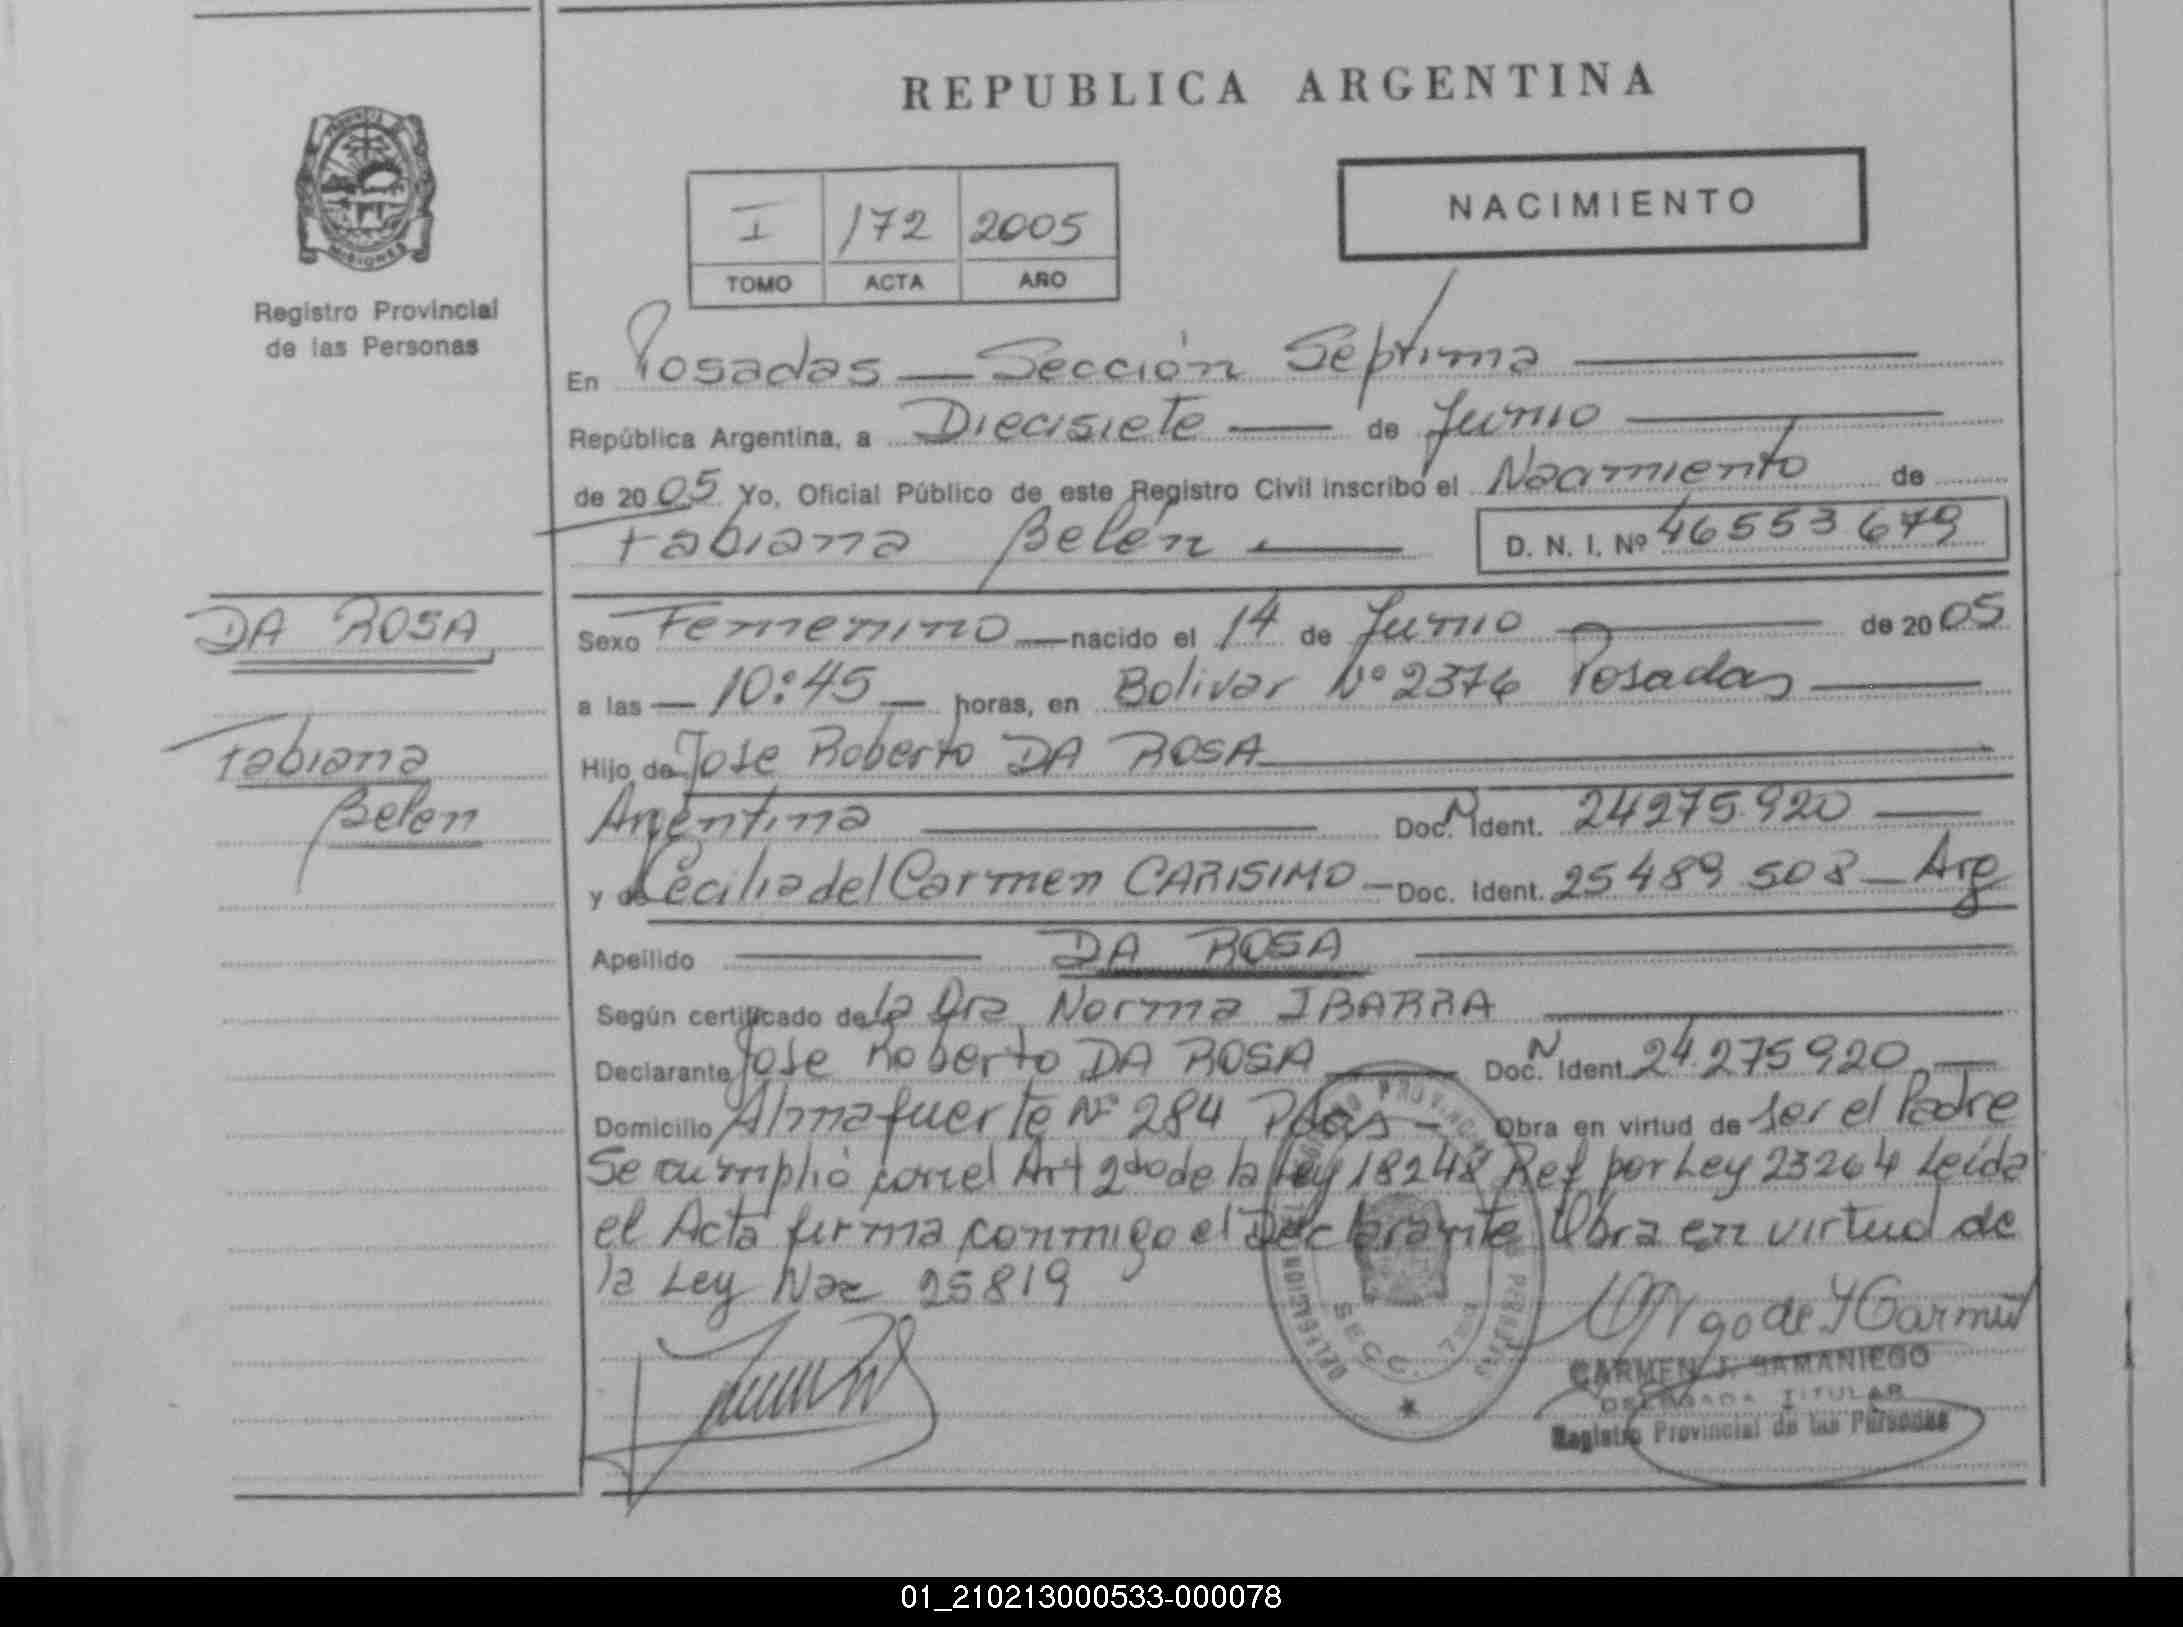 REPUBLICA ARGENTINA
NACIMIENTO
I 172 2005
TOMO ACTA AÑO
Registro Provincial
de las Personas
En Posadas — Sección Séptima
República Argentina, a Diecisiete — de Junio
de 2005 Yo, Oficial Público de este Registro Civil inscribo el Nacimiento de
Fabiana Belén — D. N. I. Nº 46553679
DA ROSA
Fabiana
Belen
Sexo Femenino — nacido el 14 de Junio — de 2005
a las — 10:45 — horas, en Bolivar Nº 2376 Posadas —
Hijo de Jose Roberto DA ROSA
Argentina — Doc. N Ident. 24275.920 —
y de Cecilia del Carmen CARISIMO — Doc. Ident. 25489 508 — Arg
Apellido — DA ROSA —
Según certificado de la Dra Norma IBARRA
Declarante Jose Roberto DA ROSA — Doc. N Ident. 24.275920 —
Domicilio Almafuerte Nº 284 Pdas — Obra en virtud de ser el Padre
Se cumplió con el Art 2do de la Ley 18248 Ref por Ley 23264 Leída
el Acta firma conmigo el Declarante Obra en virtud de
la Ley Nac 25819
CARMEN J. SAMANIEGO
DELEGADA TITULAR
Registro Provincial de las Personas
01_210213000533-000078